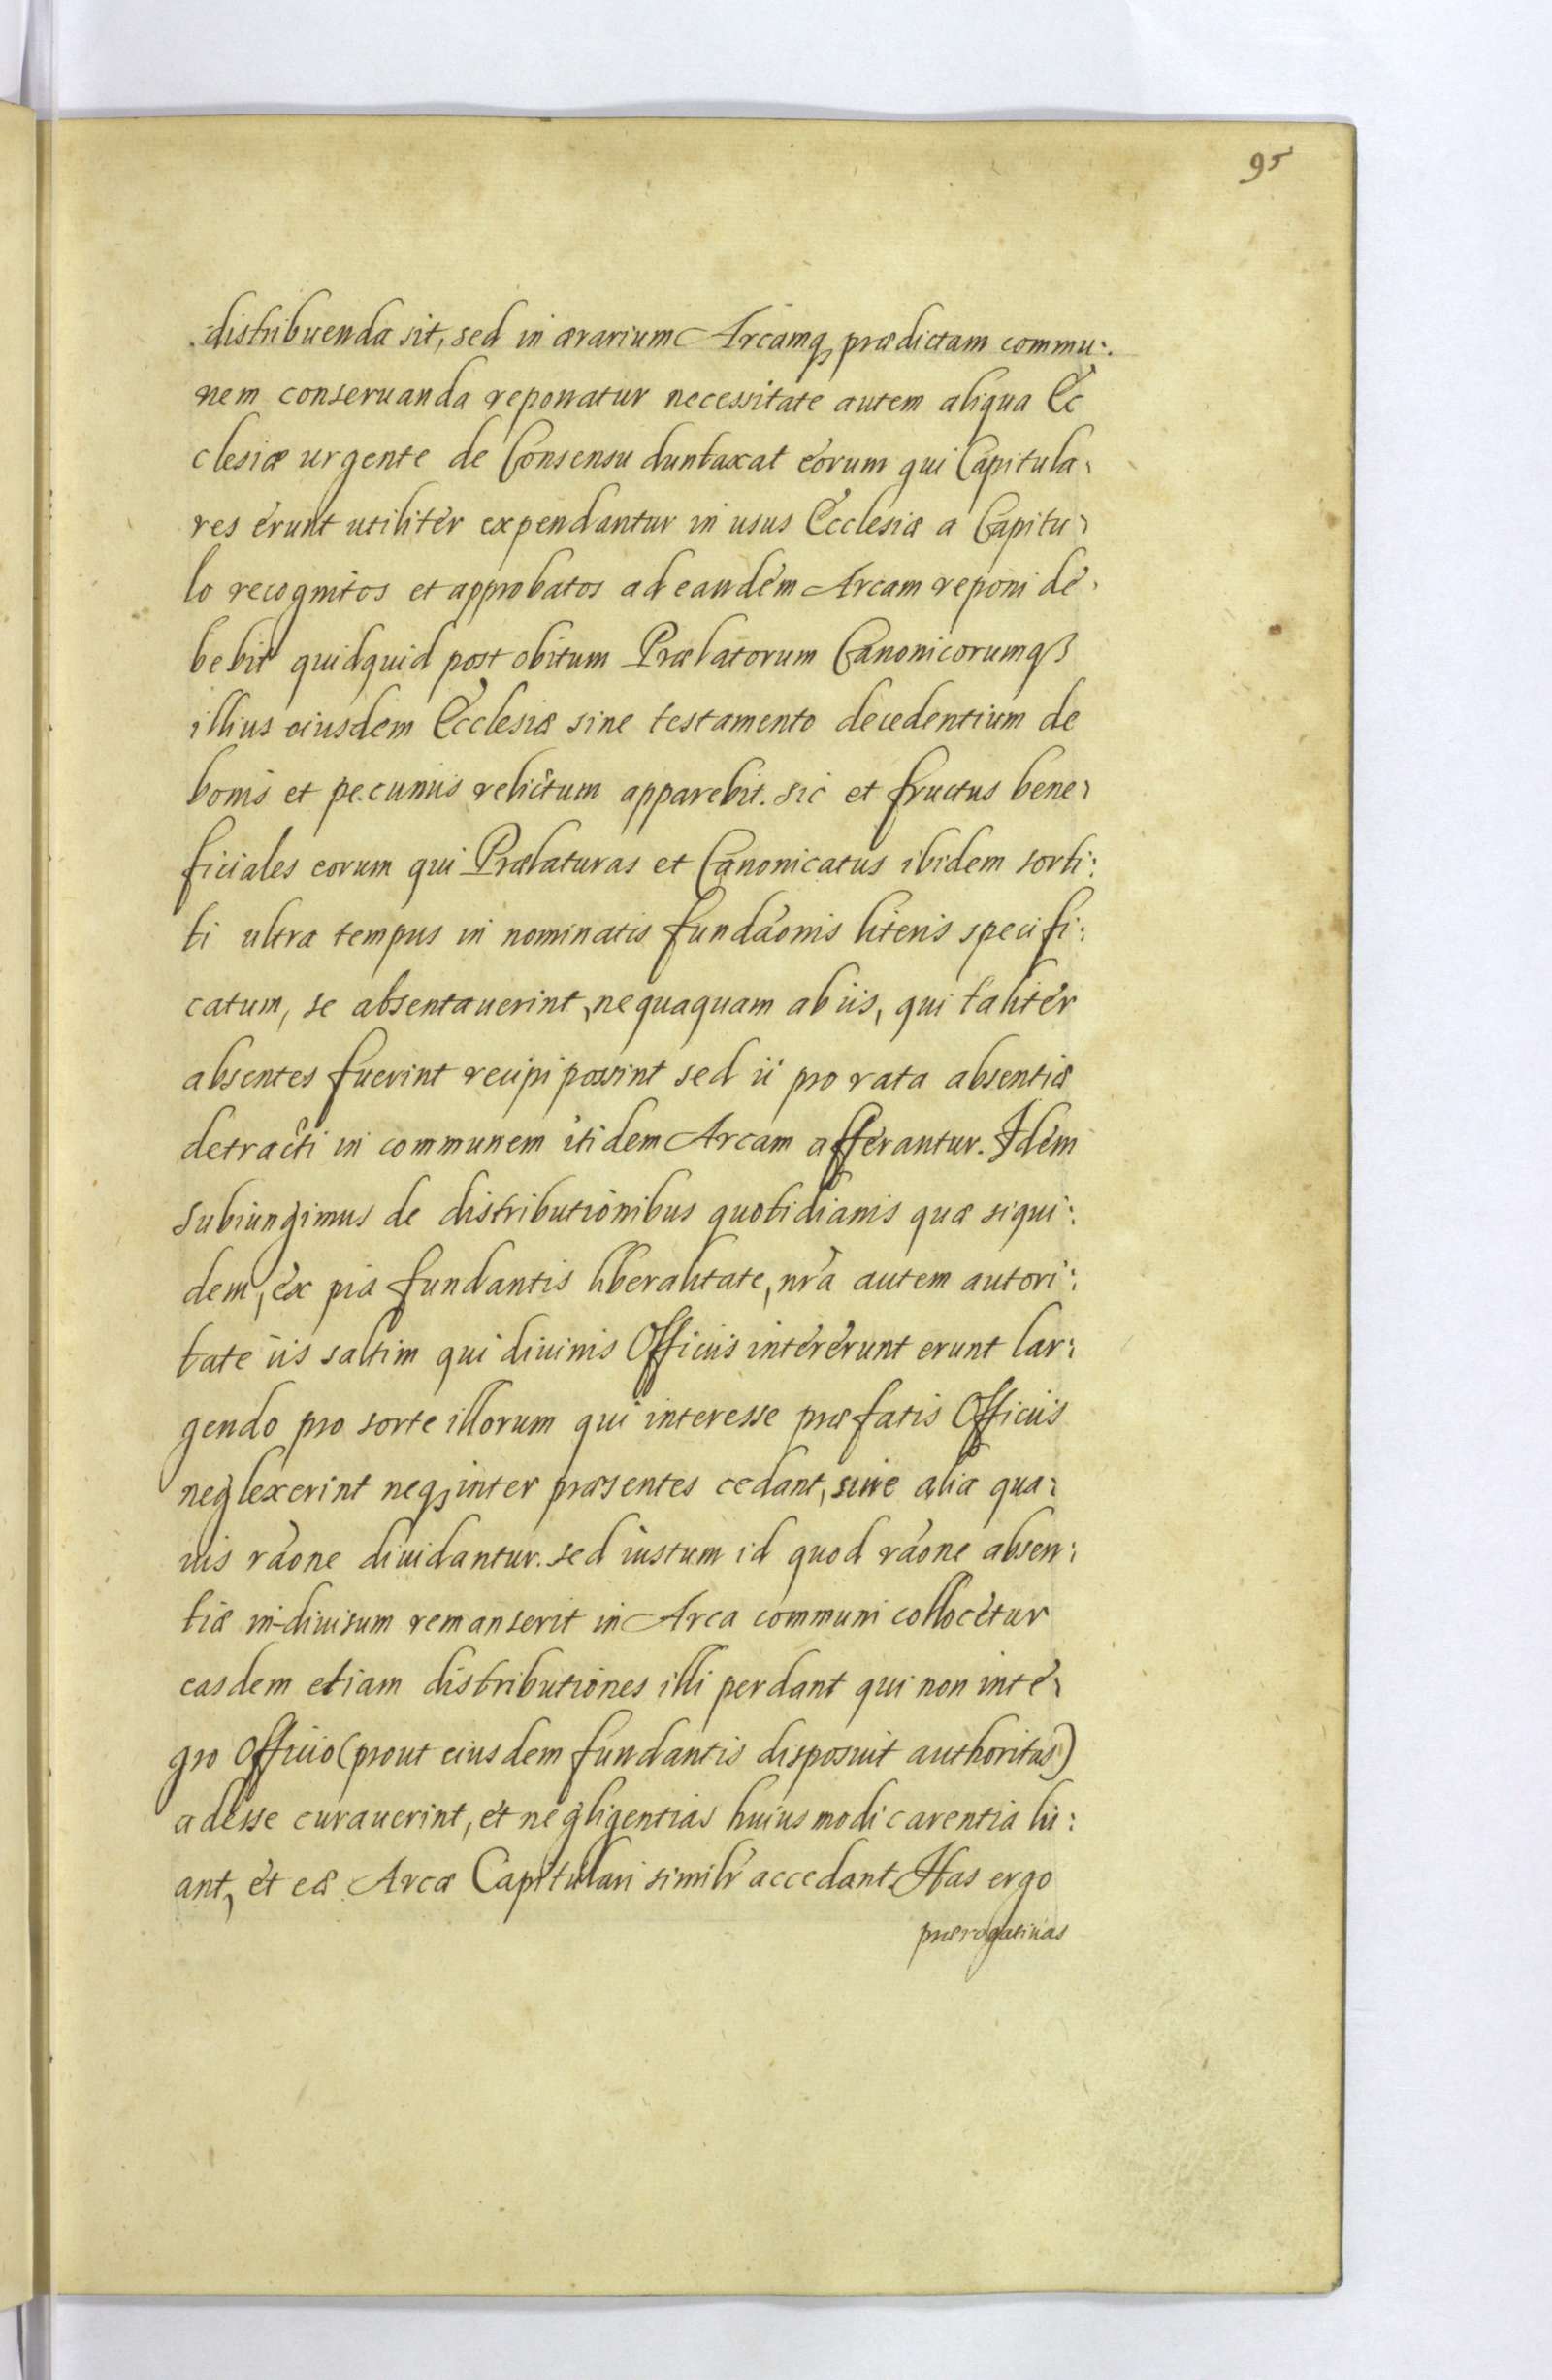 95
distribuenda sit, sed in ærarium Arcamq prædictam commu:
nem conseruanda reponatur necessitate autem aliqua Ec
clesiæ urgente de Consensu duntaxat eorum qui Capitula,
res erunt utiliter expendantur in usus Ecclesiæ a Capitu,
lo recognitos et approbatos ad eandem Arcam reponi de,
bebit quidquid post obitum Prælatorum Canonicorumqꝫ
illius eiusdem Ecclesiæ sine testamento decedentium de
bonis et pecuniis relictum apparebit. sic et fructus bene,
ficiales eorum qui Prælaturas et Canonicatus ibidem sorti:
ti ultra tempus in nominatis fundãonis literis specifi:
catum, se absentauerint, nequaquam ab iis, qui taliter
absentes fuerint recipi possint sed ii pro rata absentiæ
detracti in communem itidem Arcam afferantur. Idem
subiungimus de distributionibus quotidianis quæ siqui:
dem, ex pia fundantis liberalitate, nrã autem autori:
tate iis saltim qui diuinis Officiis intererunt erunt lar:
gendo pro sorte illorum qui interesse præfatis Officiis
neglexerint neqꝫ inter præsentes cedant, siue alia qua:
uis rãone diuidantur. sed iustum id quod rãone absen:
tiæ in-diuisum remanserit in Arca communi collocetur
easdem etiam distributiones illi perdant qui non inte,
gro Officio (prout eiusdem fundantis disposuit authoritas)
adesse curauerint, et negligentias huiusmodi carentia lu:
ant, et eæ Arcæ Capitulari similr accedant. Has ergo
prærogatiuas